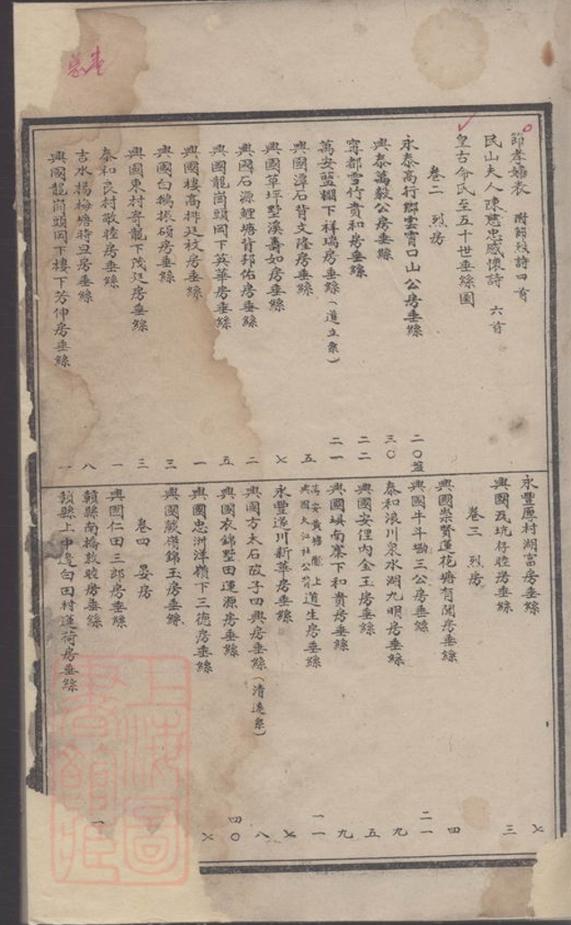 節孝婦表 附節烈詩四首
民山夫人陳慧忠感懷詩 六首
皇古命氏至五十世垂絲圖
卷二 烈房
永泰高行鄉雲霄口山公房垂絲 二〇
興泰萬毅公房垂絲 三〇
甯都雪竹貴和房垂絲 二二
萬安藍棚下祥瑞房垂絲（道立眾） 二一
興國潭石背文隆房垂絲 五
興國草坪墅溪壽如房垂絲 七
興國石源鯉塘背邦佑房垂絲 二
興國龍崗頭岡下英華房垂絲 五
興國樓高排廷枝房垂絲 一
興國白鵝振碩房垂絲 三
興國東村寄龍下茂廷房垂絲 三
泰和良村敬睦房垂絲 一
吉水楊梅塘時旦房垂絲 八
興國龍崗頭岡下樓下芳仲房垂絲 一
永豐屋村湖富房垂絲 七
興國瓦坑仔睦房垂絲 三
卷三 烈房
興國崇賢蓮花塘有聞房垂絲 四
興國牛斗坳三公房垂絲 二一
泰和浪川泉水湖九明房垂絲 九
興國安俚內金玉房垂絲 五
興國塅南寨下和貴房垂絲 九
萬安黃塘 上
興國大江社公背 道生房垂絲 一一
永豐遂川新華房垂絲 七
興國方太石改子四興房垂絲（清遠眾） 八
興國衣錦墅田運源房垂絲 四〇
興國忠洲洋嶺下三德房垂絲 七
興國嶺錦玉房垂絲
卷四 晏房
興國仁田三郎房垂絲
贛縣南橋敦睦房垂絲
贛縣上中邊白田村蓮荷房垂絲 一
上海圖書館藏